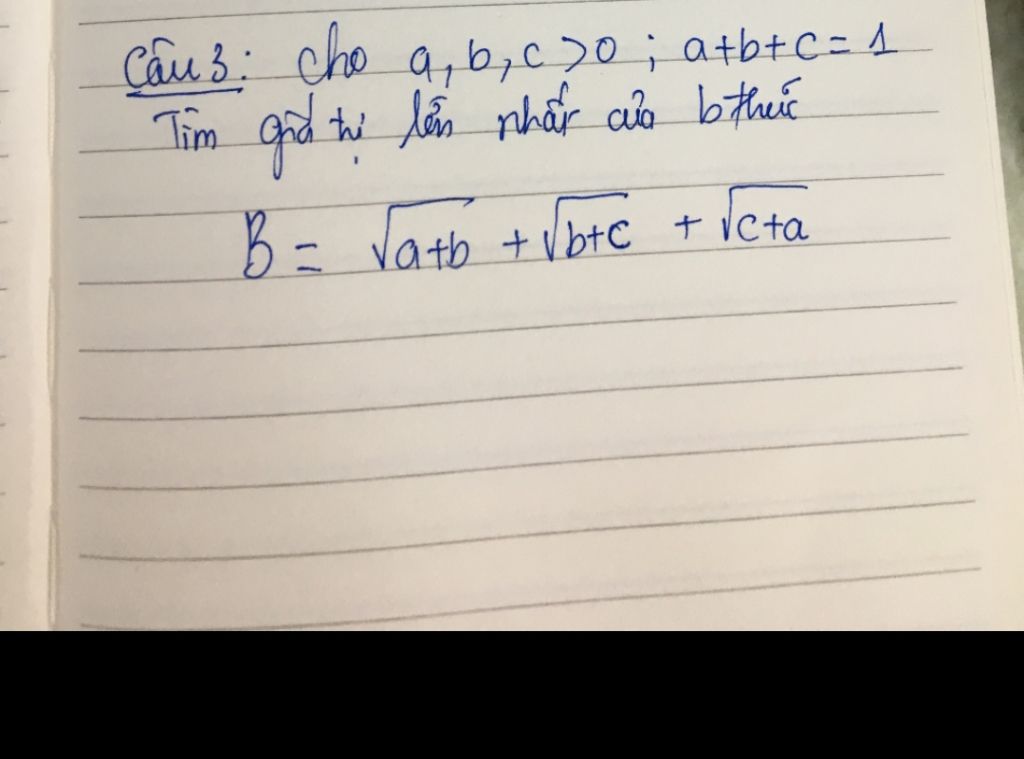 Câu 3: Cho a, b, c > 0 ; a+b+c = 1
Tìm giá trị lớn nhất của b thức
B = √a+b + √b+c + √c+a